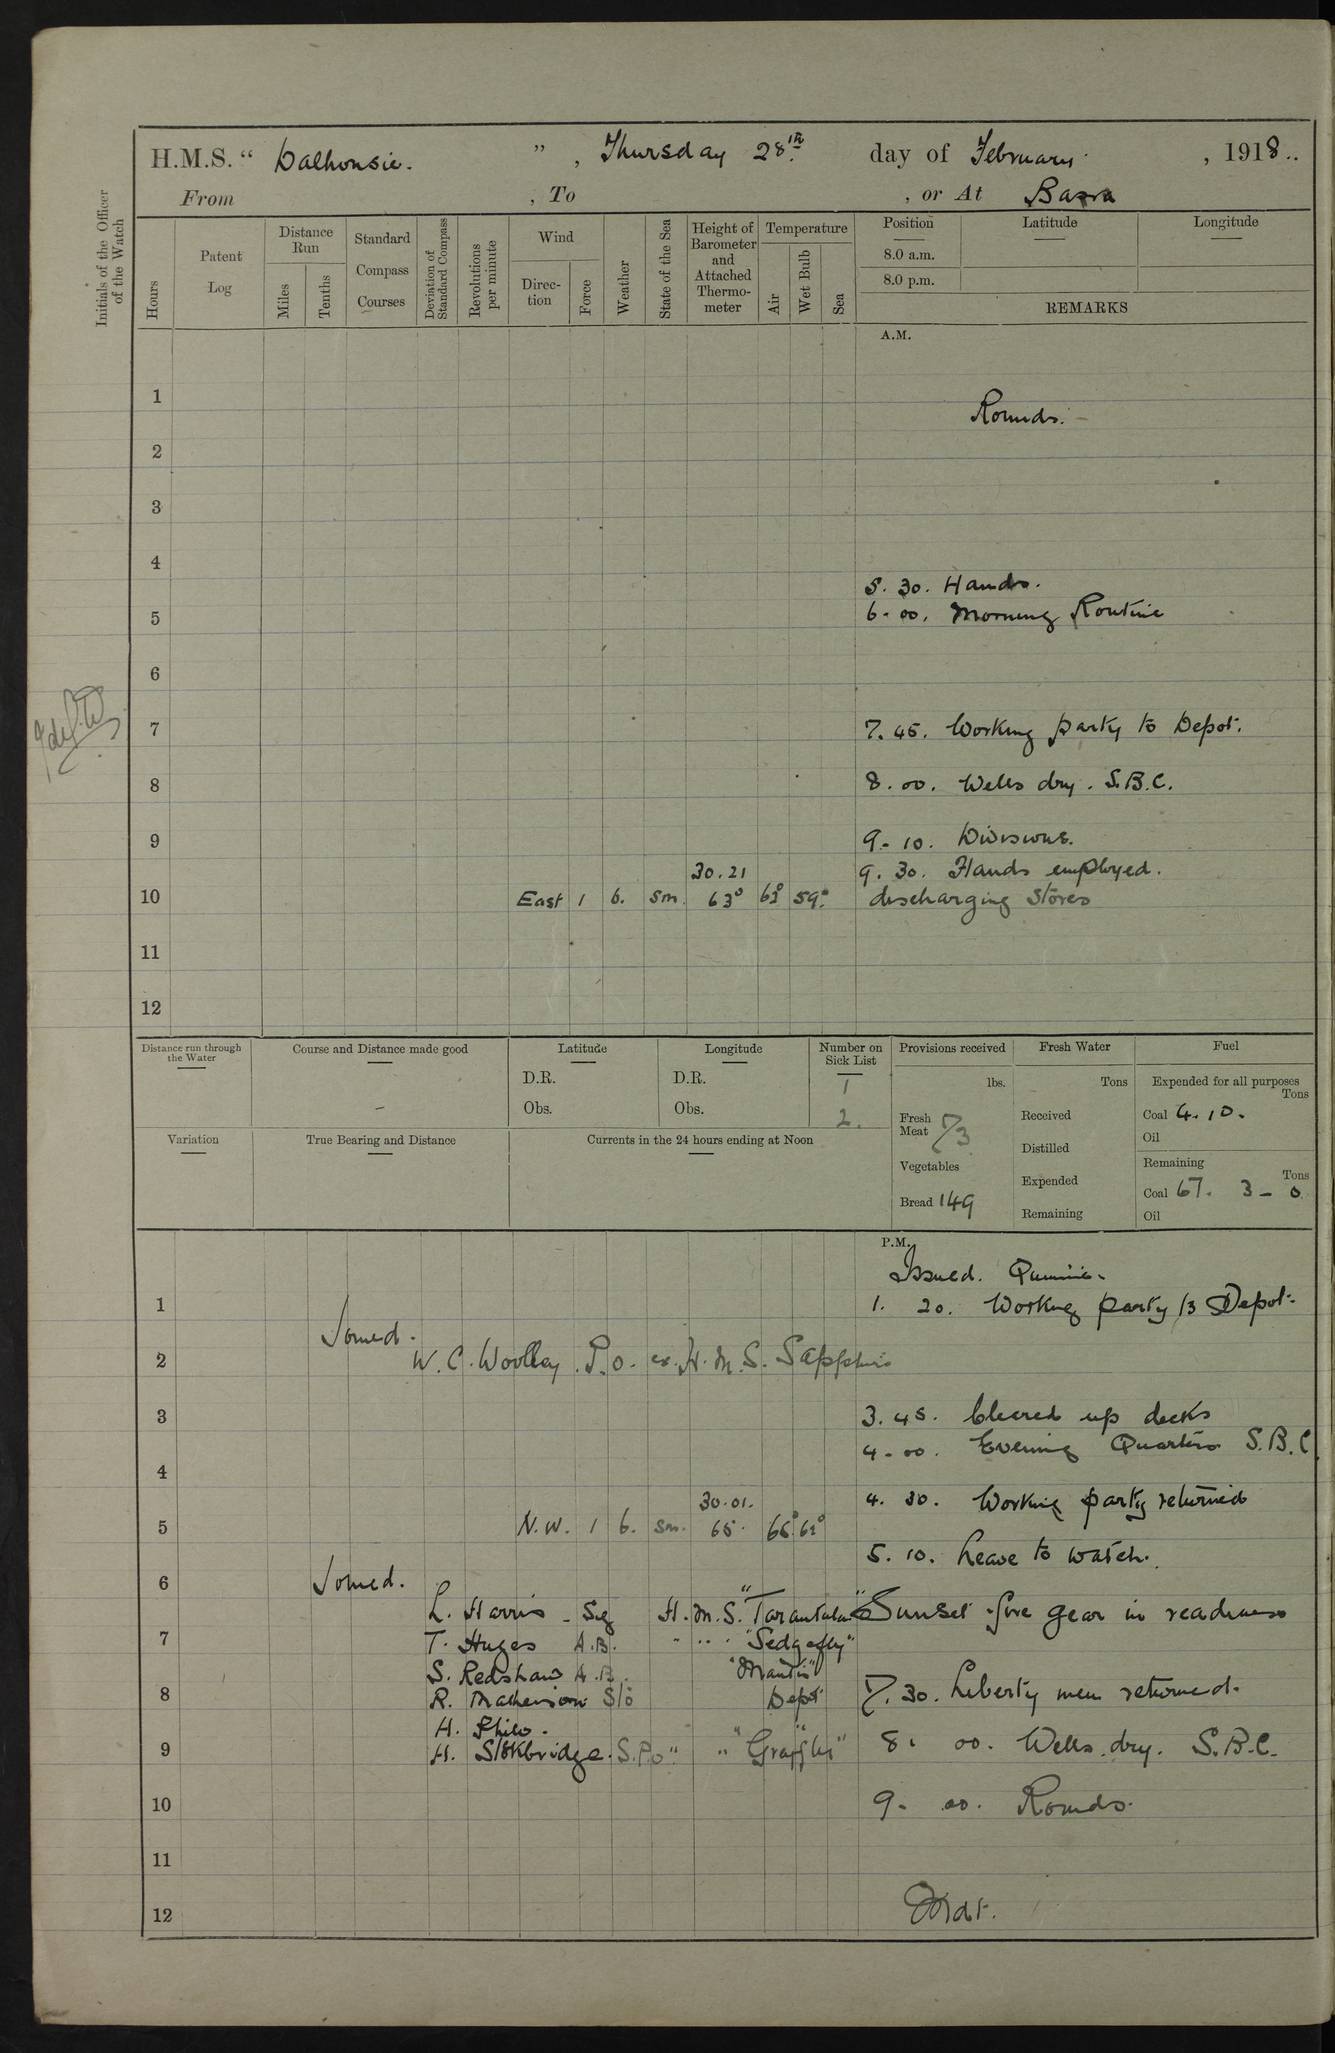 H.M.S. " Dalhousie. " , Thursday 28th. day of February. , 1918..
From , To , or At Basra
Initials of the Officer of the Watch
Hours
Patent Log
Distance Run
Miles
Tenths
Standard Compass Courses
Deviation of Standard Compass
Revolutions per minute
Wind
Direction
Force
Weather
State of the Sea
Height of Barometer and Attached Thermometer
Temperature
Air
Wet Bulb
Sea
Position Latitude Longitude
8.0 a.m.
8.0 p.m.
REMARKS
A.M.
1
Rounds.
2
3
4
5. 30. Hands.
5 6. 00. Morning Routine
6
7 7. 45. Working party to Depot.
8 8. 00. Wells dry. S.B.C.
9 9. 10. Divisions.
30.21 9. 30. Hands employed.
10 East 1 b. sm. 63° 63° 59° discharging stores
11
12
Distance run through the Water
Course and Distance made good
Latitude
D.R.
Obs.
Longitude
D.R.
Obs.
Number on Sick List
1
2.
Provisions received
lbs.
Fresh Meat 73
Vegetables
Bread 149
Fresh Water
Tons
Received
Distilled
Expended
Remaining
Fuel
Expended for all purposes
Tons
Coal 4. 10.
Oil
Remaining
Tons
Coal 67. 3 - 0
Oil
Variation
True Bearing and Distance
Currents in the 24 hours ending at Noon
P.M.
Issued. Quinine.
1 1. 20. Working party to Depot.
Joined.
2 W. C. Woolley. P.O. ex. H.M.S. Sapphire
3 3. 45. Cleared up decks
4. 00. Evening Quarters S.B.C.
4
30.01. 4. 30. Working party returned
5 N.W. 1 b. sm. 65. 66° 62°
5. 10. Leave to watch.
6 Joined.
L. Harris - Sig H.M.S. "Tarantula" Sunset fire gear in readiness
7 T. Huges A.B. " " "Sedgefly"
S. Redshaw A.B. "Mantis"
8 R. Matherson Sto Depot 7. 30. Liberty men returned.
H. Philo.
9 H. Stokbridge. S.P.O " " "Grayfly" 8. 00. Wells dry. S.B.C.
10 9. 00. Rounds.
11
12 Mdt.